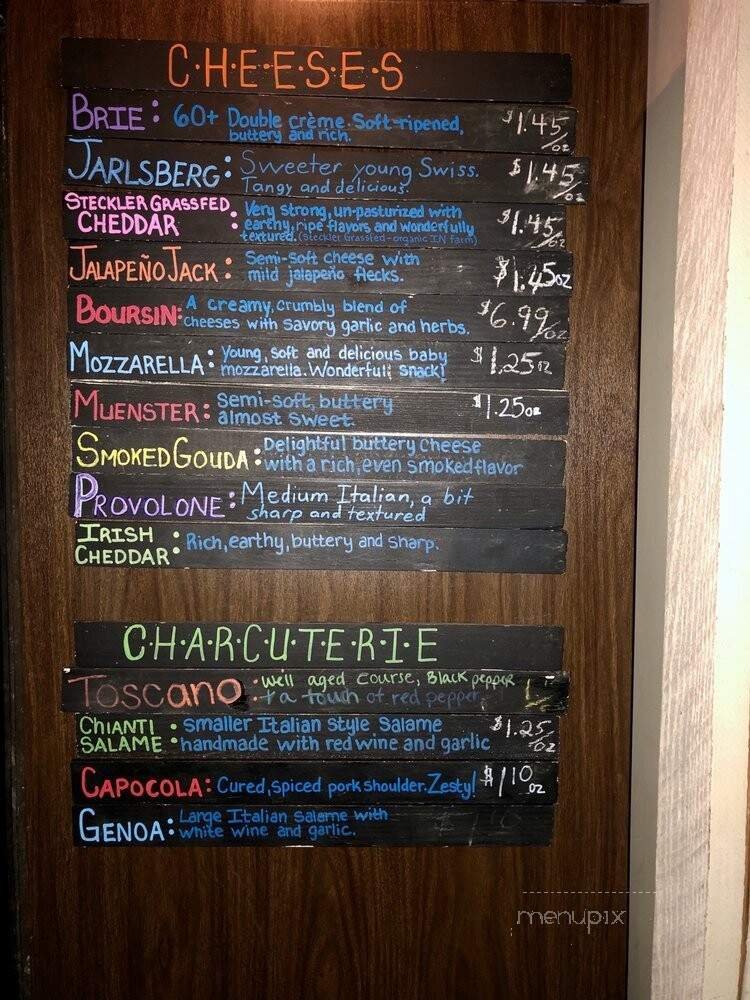 C·H·E·E·S·E·S
BRIE: 60+ Double crème. Soft-ripened, $1.45/oz
buttery and rich.
JARLSBERG: Sweeter young Swiss. $1.45/oz
Tangy and delicious.
STECKLER GRASSFED CHEDDAR: Very strong, un-pasturized with $1.45/oz
earthy, ripe flavors and wonderfully
textured. (Steckler Grassfed-organic IN farm)
JALAPEÑO JACK: Semi-soft cheese with $1.45oz
mild jalapeño flecks.
BOURSIN: A creamy, crumbly blend of $6.99/oz
cheeses with savory garlic and herbs.
MOZZARELLA: Young, soft and delicious baby $1.25oz
mozzarella. Wonderful snack!
MUENSTER: semi-soft, buttery $1.25oz
almost sweet.
SMOKED GOUDA: Delightful buttery cheese
with a rich, even smoked flavor
PROVOLONE: Medium Italian, a bit
sharp and textured
IRISH CHEDDAR: Rich, earthy, buttery and sharp.
C·H·A·R·C·U·T·E·R·I·E
TOSCANO: well aged course, Black pepper
+ a touch of red pepper
CHIANTI SALAME: smaller Italian style Salame $1.25/oz
handmade with red wine and garlic
CAPOCOLA: Cured, spiced pork shoulder. Zesty! $1.10 oz
GENOA: Large Italian salame with
white wine and garlic.
menupix